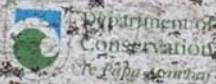 Department of
Conservation
Te Papa Atawhai